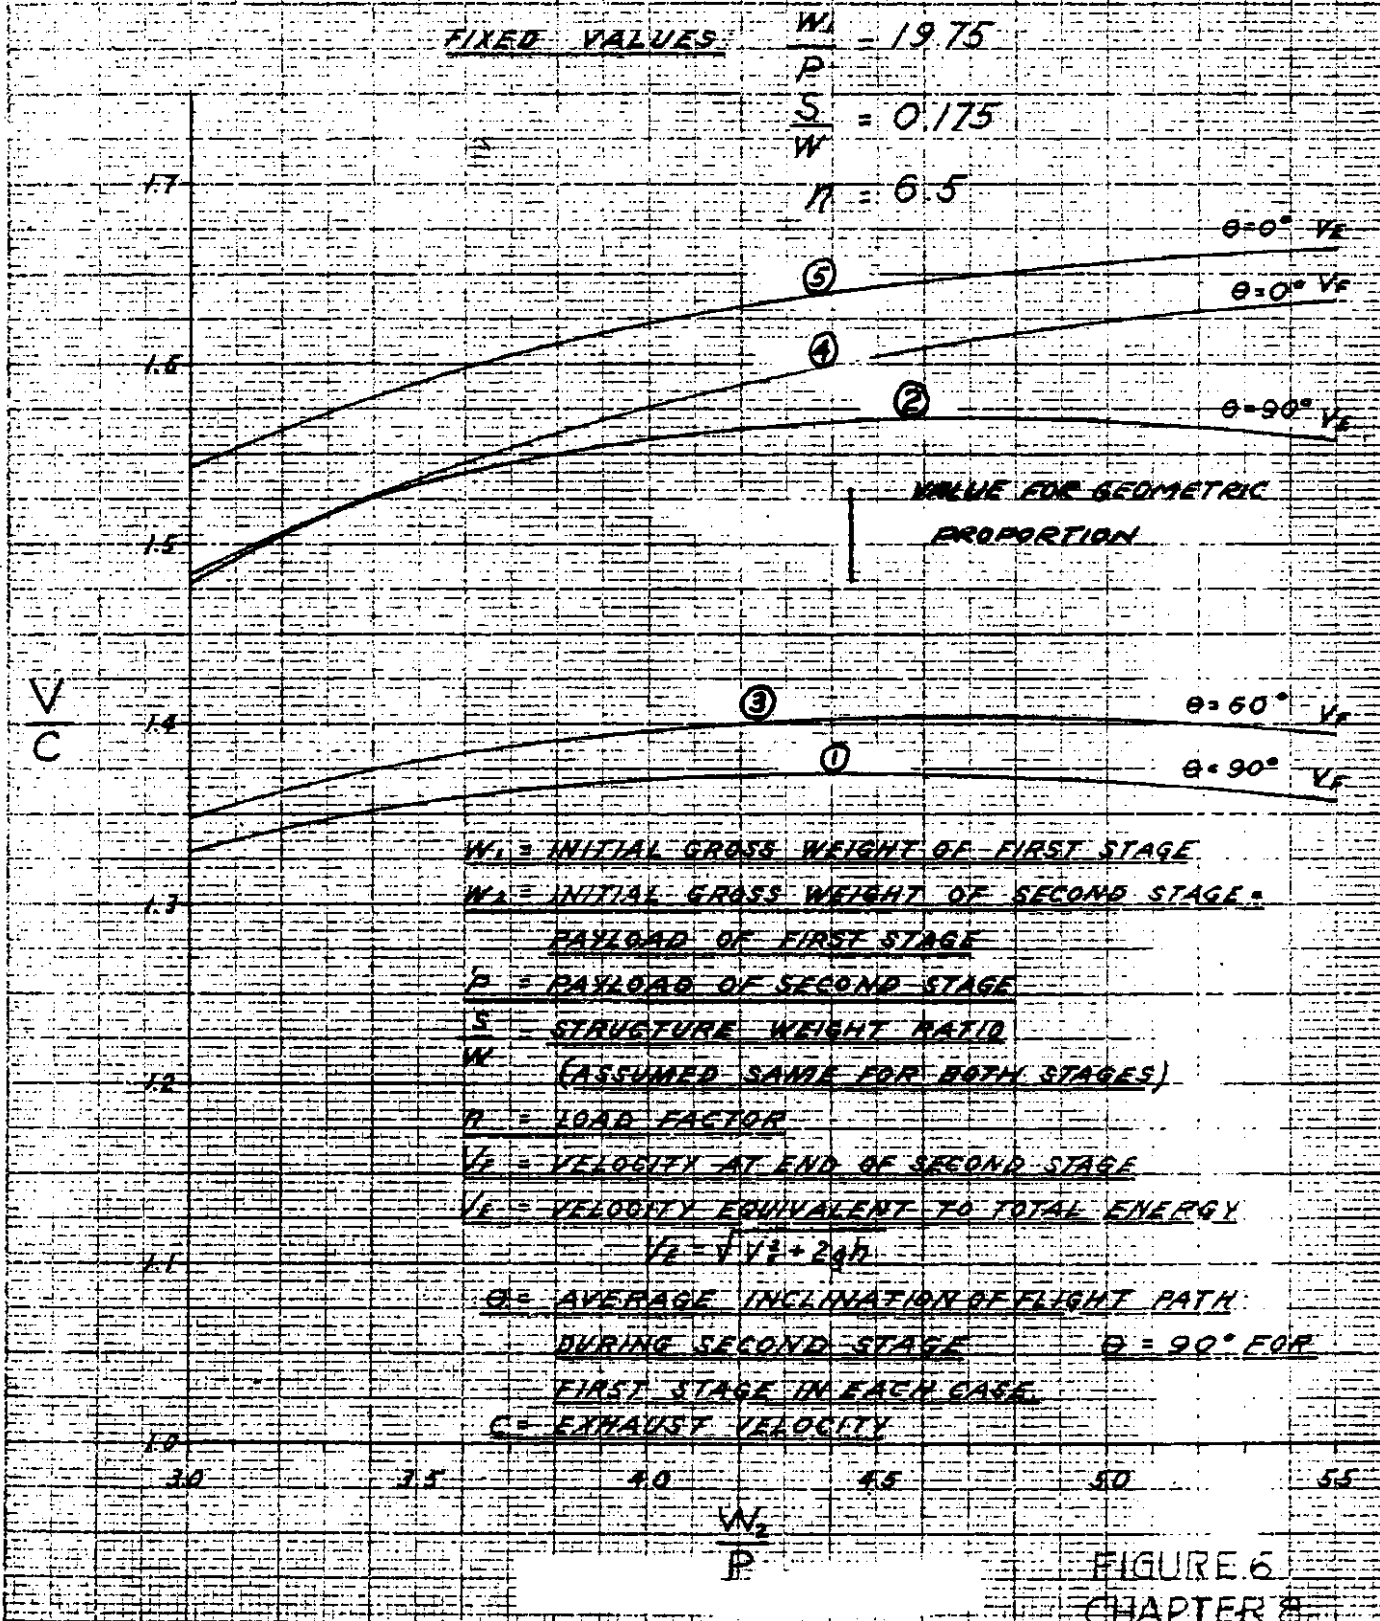 FIXED VALUES
W₁/P = 19.75
S/W = 0.175
n = 6.5
1.7
θ=0° V_E
⑤
θ=0° V_F
④
1.6
②
θ=90° V_E
VALUE FOR GEOMETRIC
PROPORTION
1.5
V/C
③
θ=60° V_F
1.4
①
θ=90° V_F
W₁ = INITIAL GROSS WEIGHT OF FIRST STAGE
1.3
W₂ = INITIAL GROSS WEIGHT OF SECOND STAGE =
PAYLOAD OF FIRST STAGE
P = PAYLOAD OF SECOND STAGE
S/W = STRUCTURE WEIGHT RATIO
1.2
(ASSUMED SAME FOR BOTH STAGES)
n = LOAD FACTOR
V_F = VELOCITY AT END OF SECOND STAGE
V_E = VELOCITY EQUIVALENT TO TOTAL ENERGY
V_E = √V_F² + 2gh
1.1
θ = AVERAGE INCLINATION OF FLIGHT PATH
DURING SECOND STAGE θ = 90° FOR
FIRST STAGE IN EACH CASE.
C = EXHAUST VELOCITY
1.0
3.0 3.5 4.0 4.5 5.0 5.5
W₂/P
FIGURE 6
CHAPTER 8